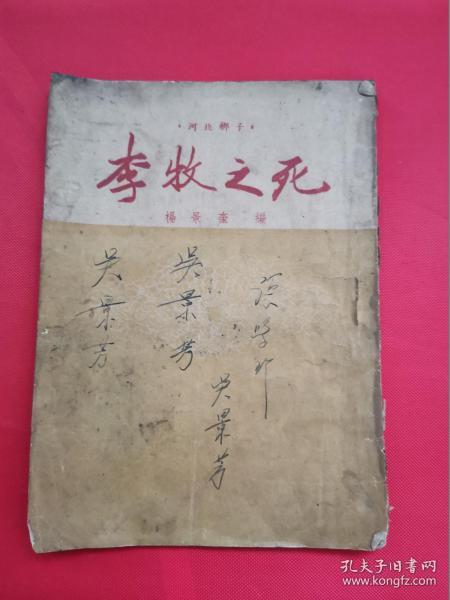 ·河北梆子·
李牧之死
楊景奎 編
吴景芳
吴景芳
吴景芳
孔夫子旧书网
www.kongfz.com